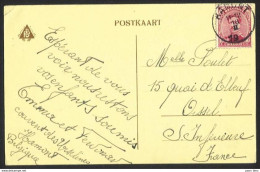 POSTKAART
HAMONT
Espérant de vous
voir nous restons
vos enfants soumis
Emma et
couvent des Ursulines
Hamont
Belgique
Melle Poulet
15 quai d'Elbeuf
Oissel
S. Inférieure
France